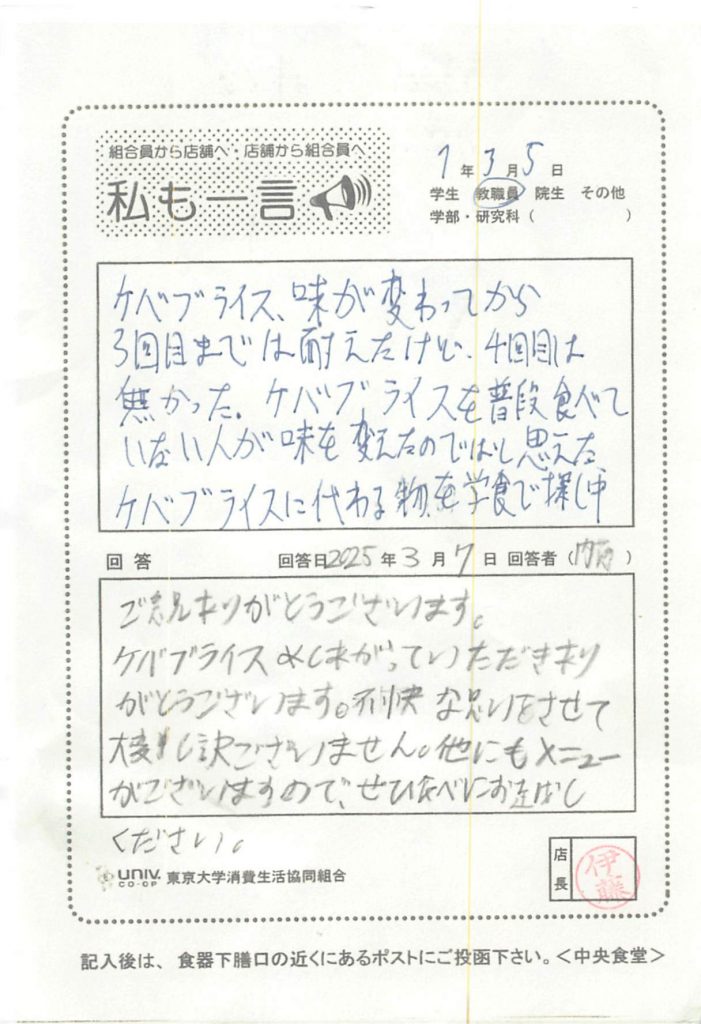 組合員から店舗へ・店舗から組合員へ
私も一言
7年3月5日
学生 教職員 院生 その他
学部・研究科( )
ケバブライス、味が変わってから
3回目までは耐えたけど、4回目は
無かった。ケバブライスを普段食べて
いない人が味を変えたのではと思えた
ケバブライスに代わる物を学食で探し中
回答 回答日2025年3月7日 回答者( )
ご意見ありがとうございます。
ケバブライスめしあがっていただきあり
がとうございます。不快な思いをさせて
大変申し訳ございません。他にもメニュー
がございますので、ぜひたべにお運びし
ください。
UNIV. CO-OP 東京大学消費生活協同組合
店長 伊藤
記入後は、食器下膳口の近くにあるポストにご投函下さい。<中央食堂>